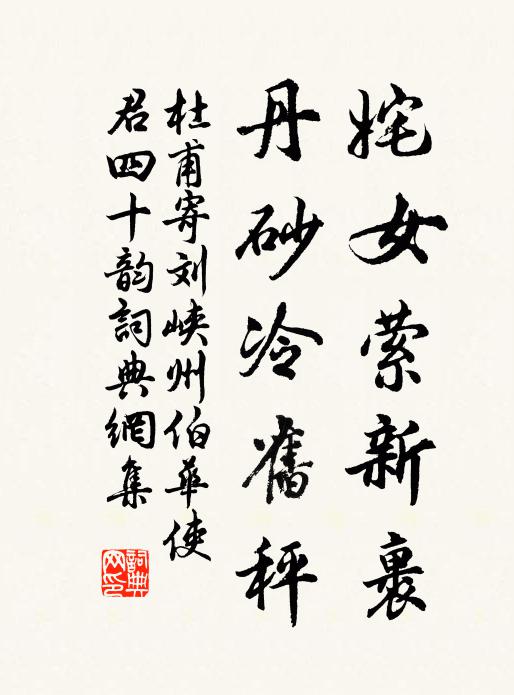 姹女萦新裹
丹砂冷舊秤
杜甫寄刘峡州伯華使
君四十韵詞典網集
詞典网印